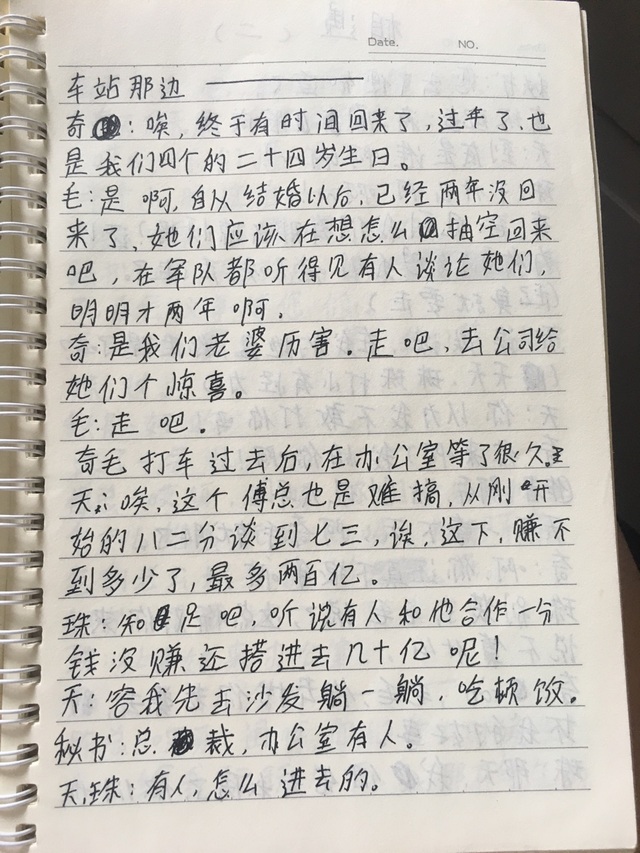 Date.
NO.
车站那边 ——
奇：唉，终于有时间回来了，过年了，也
是我们四个的二十四岁生日。
毛：是啊，自从结婚以后，已经两年没回
来了，她们应该在想怎么抽空回来
吧，在军队都听得见有人谈论她们，
明明才两年啊，
奇：是我们老婆厉害。走吧，去公司给
她们个惊喜。
毛：走吧。
奇毛打车过去后，在办公室等了很久。
天：唉，这个傅总也是难搞，从刚开
始的八二分谈到七三，诶，这下，赚不
到多少了，最多两百亿。
珠：知足吧，听说有人和他合作一分
钱没赚还搭进去几十亿呢！
天：容我先去沙发躺一躺，吃顿饭。
秘书：总裁，办公室有人。
天，珠：有人，怎么进去的。